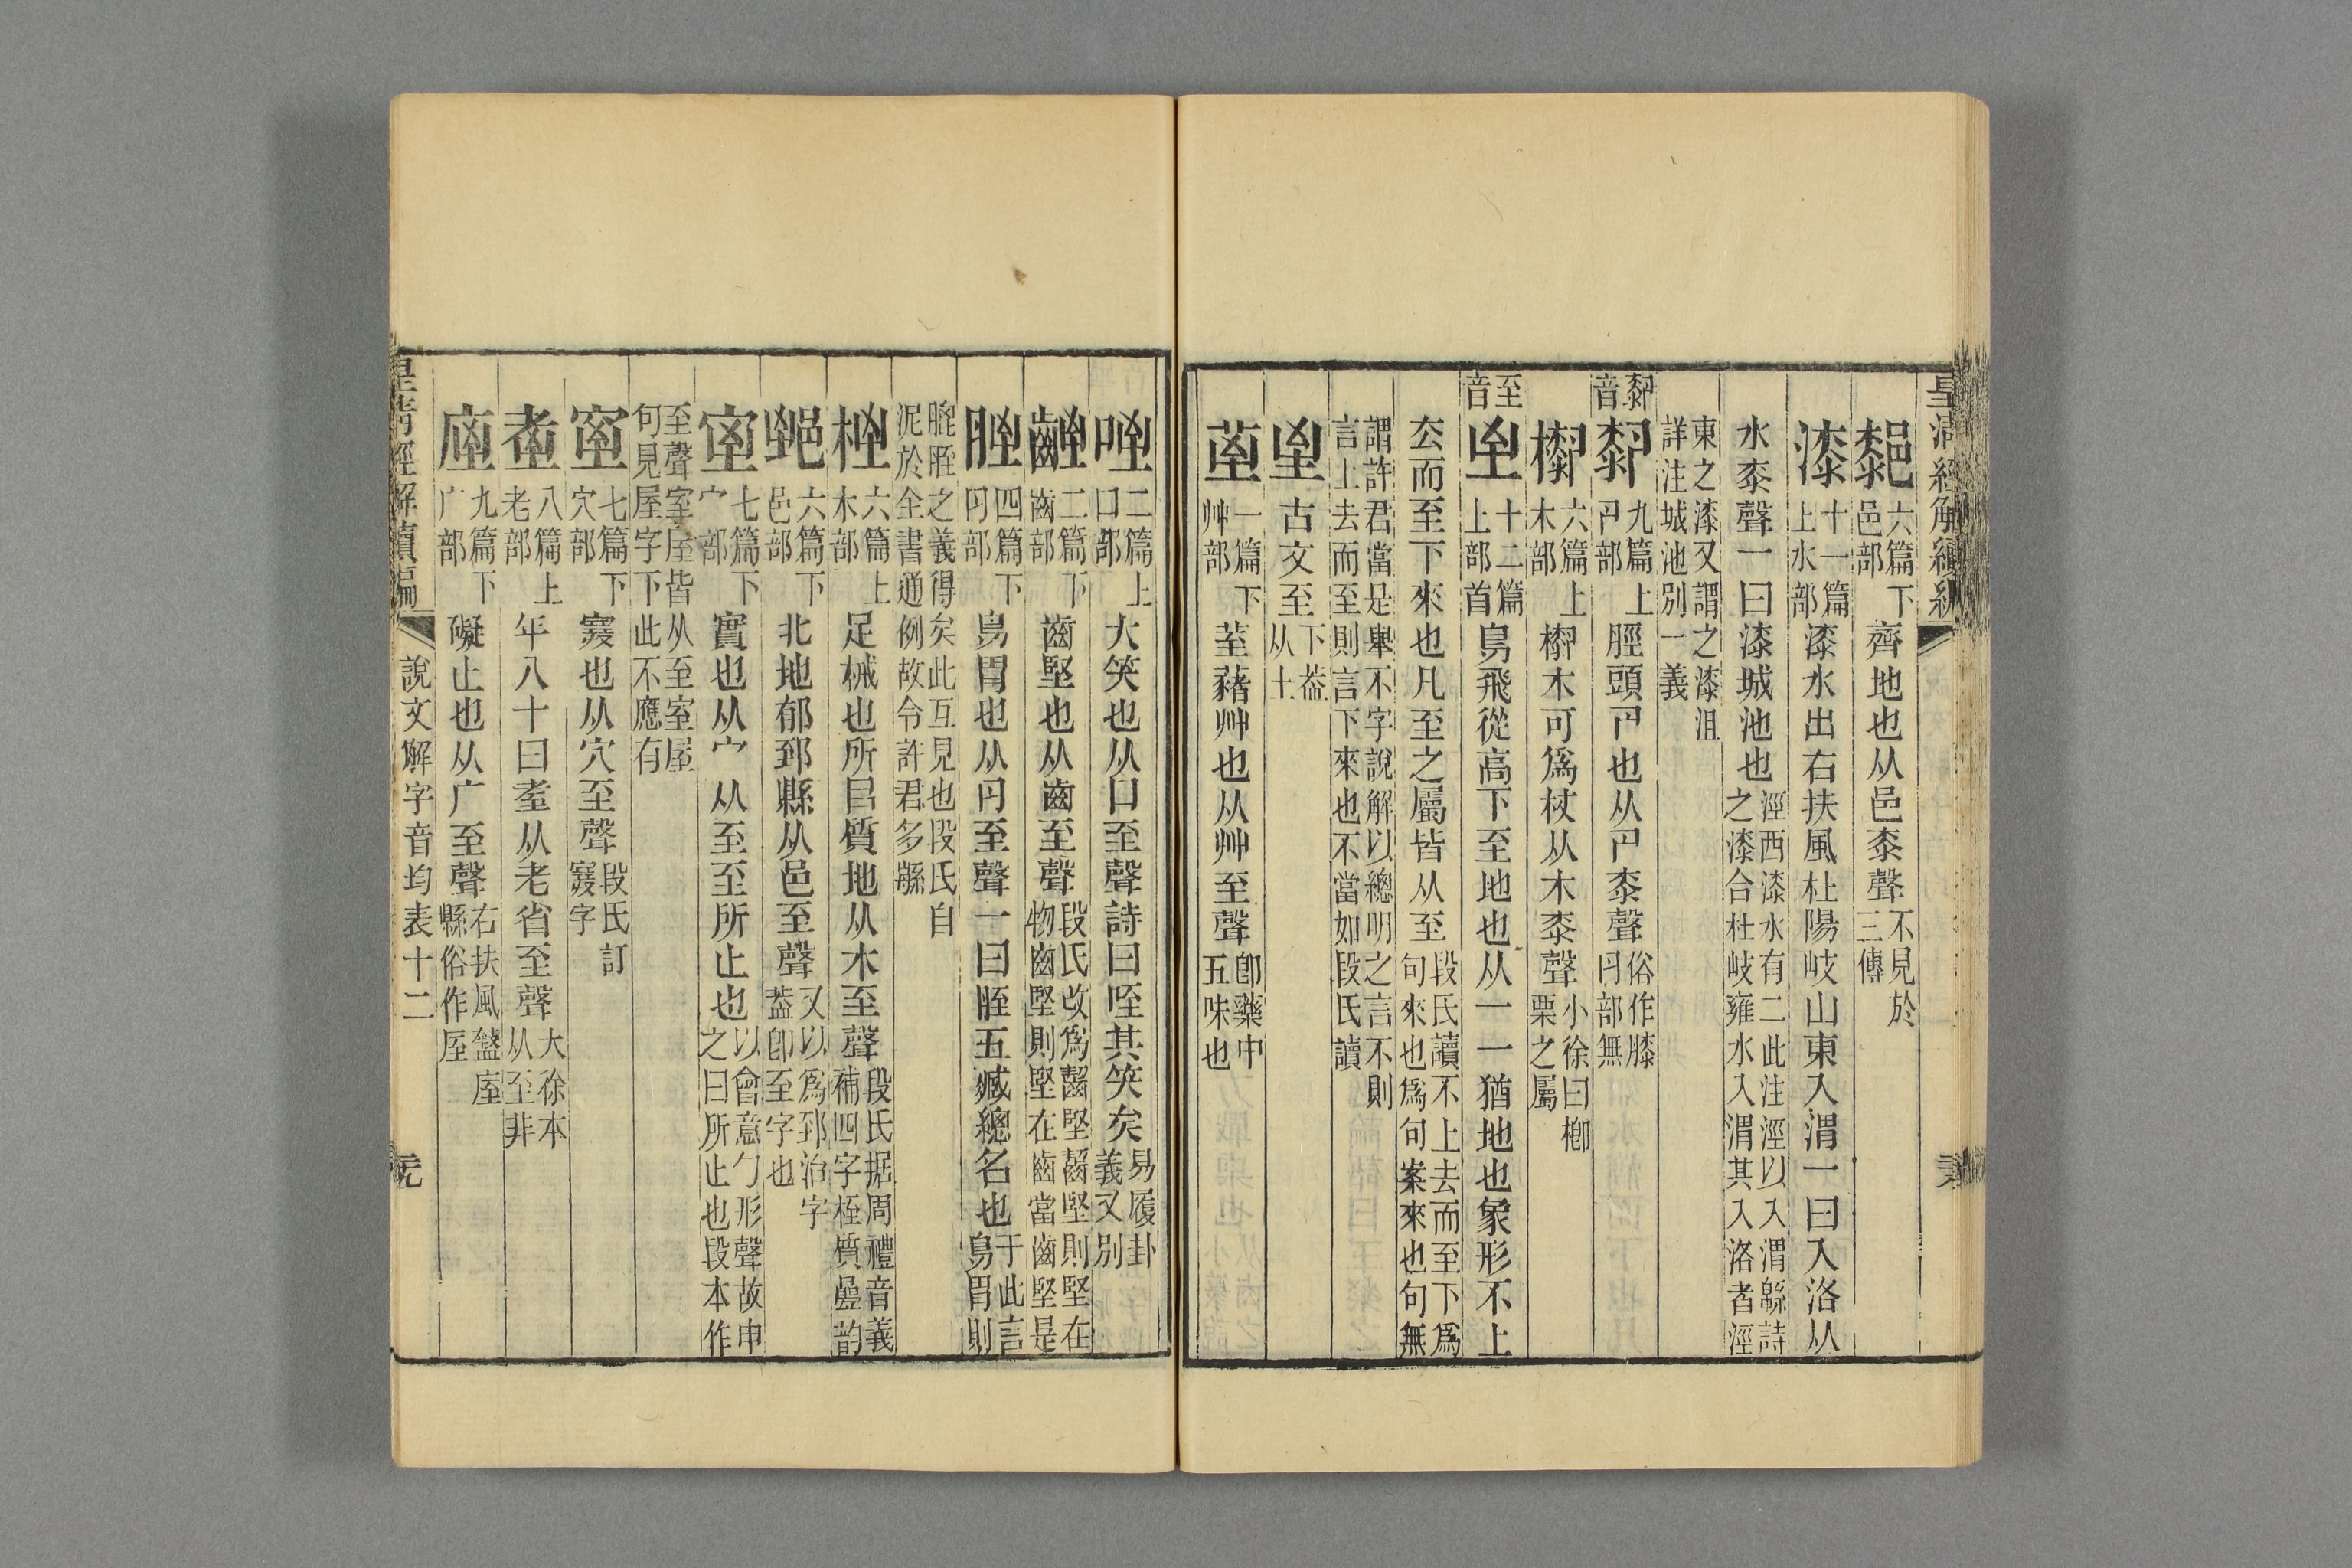 皇清經解續編
䣛六篇下邑部齊地也从邑桼聲不見於三傳
漆十一篇上水部漆水出右扶風杜陽岐山東入渭一曰入洛从
水桼聲一曰漆城池也涇西漆水有二此注涇以入渭緜詩之漆合杜岐雍水入渭其入洛者涇
東之漆又謂之漆沮詳注城池別一義
厀音
厀九篇上卪部脛頭卪也从卪桼聲俗作膝肉部無
㯡六篇上木部㯡木可爲杖从木桼聲小徐曰櫛栗之屬
至音
至十二篇上部首鳥飛從高下至地也从一一猶地也象形不上
去而至下來也凡至之屬皆从至段氏讀不上去而至下爲句來也爲句案來也句無
謂許君當是舉不字說解以總明之言不則言上去而至則言下來也不當如段氏讀
𦤳古文至下葢从土
荎一篇下艸部荎藸艸也从艸至聲卽藥中五味也
咥二篇上口部大笑也从口至聲詩曰咥其笑矣易履卦義又別
𪗻二篇下齒部齒堅也从齒至聲段氏改爲齧堅齧堅則堅在物齒堅則堅在齒當齒堅是
胵四篇下肉部鳥胃也从肉至聲一曰胵五臧總名也于此言鳥胃則
膍胵之義得矣此互見也段氏自泥於全書通例故令許君多緜
桎六篇上木部足械也所㠯質地从木至聲段氏据周禮音義補四字桎質疊韵
郅六篇下邑部北地郁郅縣从邑至聲又以爲郅治字葢卽至字也
室七篇下宀部實也从宀从至至所止也以會意勹形聲故申之曰所止也段本作
至聲室屋皆从至室屋句見屋字下此不應有
窒七篇下穴部窡也从穴至聲段氏訂窡字
耊八篇上老部年八十曰耊从老省至聲大徐本从至非
庢九篇下广部礙止也从广至聲右扶風盩庢縣俗作厔
皇淸經解續編
說文解字音均表十二